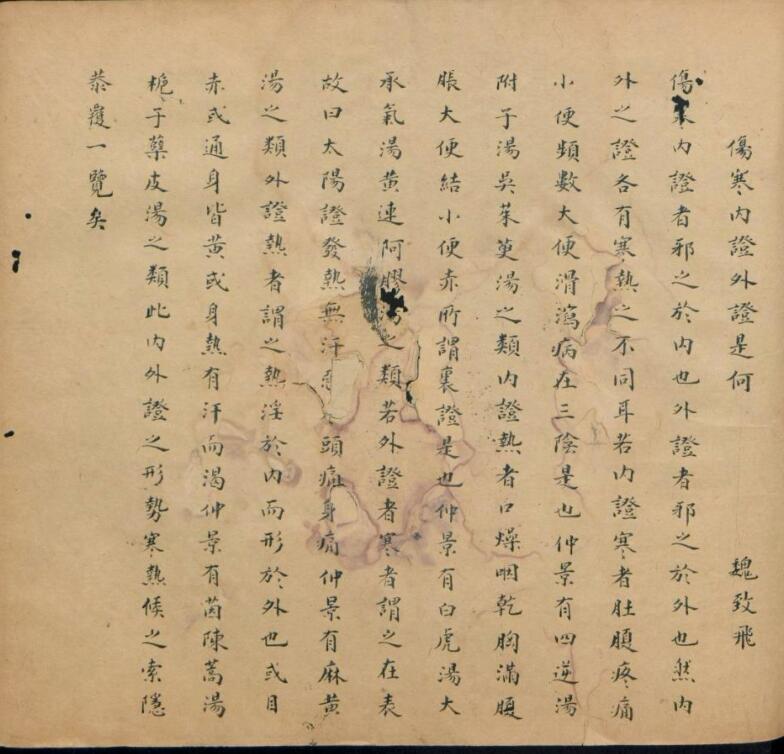 傷寒內證外證是何 魏致飛
傷內證者邪之於內也外證者邪之於外也然內
外之證各有寒熱之不同耳若內證寒者肚腹疼痛
小便頻數大便滑瀉病在三陰是也仲景有四逆湯
附子湯吳茱萸湯之類內證熱者口燥咽乾胸滿腹
脹大便結小便赤所謂裏證是也仲景有白虎湯大
承氣湯黃連阿膠湯之類若外證者寒者謂之在表
故曰太陽證發熱無汗頭痛身痛仲景有麻黃
湯之類外證熱者謂之熱淫於內而形於外也或目
赤或通身皆黃或身熱有汗而渴仲景有茵陳蒿湯
梔子蘗皮湯之類此內外證之形勢寒熱候之索隱
恭覆一覽矣